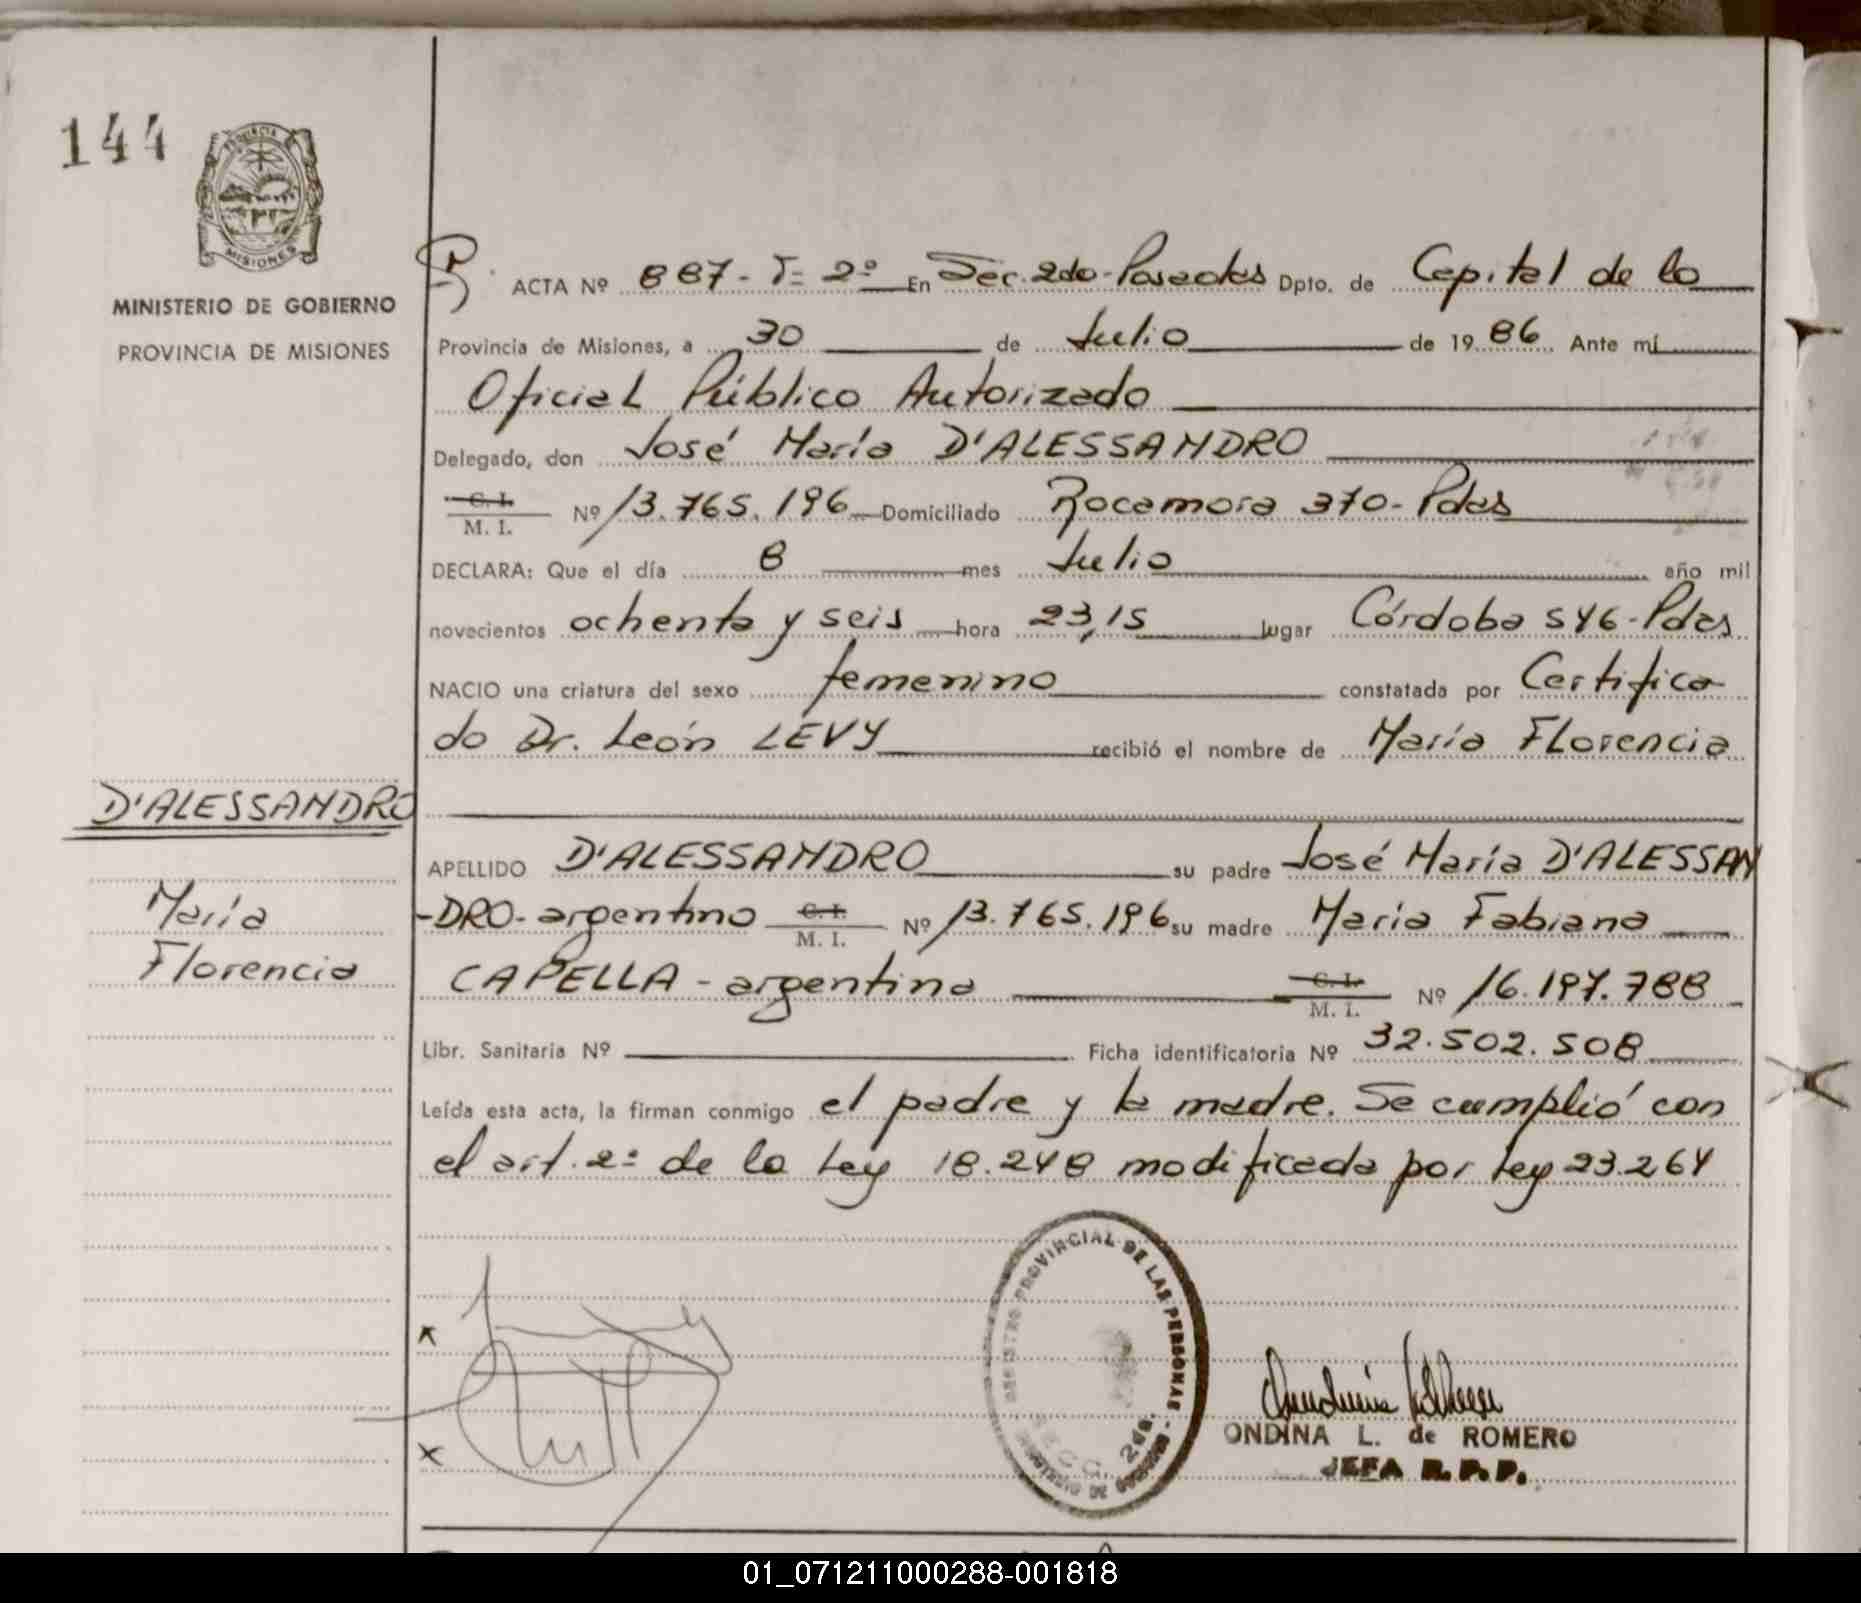 144
PROVINCIA
MISIONES
MINISTERIO DE GOBIERNO
PROVINCIA DE MISIONES
ACTA Nº 887 - T= 2º En Sec. 2do - Posadas Dpto. de Capital de la
Provincia de Misiones, a 30 de Julio de 19 86 Ante mí
Oficial Público Autorizado
Delegado, don José María D'ALESSANDRO
C. I.
M. I. Nº 13.765.196 Domiciliado Rocamora 370 - Pdas
DECLARA: Que el día 8 mes Julio año mil
novecientos ochenta y seis hora 23,15 lugar Córdoba 546 - Pdas
NACIO una criatura del sexo femenino constatada por Certifica
do Dr. León LEVY recibió el nombre de María Florencia
D'ALESSANDRO
María
Florencia
APELLIDO D'ALESSANDRO su padre José María D'ALESSAN
-DRO - argentino C. I. M. I. Nº 13.765.196 su madre María Fabiana
CAPELLA - argentina C. I. M. I. Nº 16.197.788
Libr. Sanitaria Nº Ficha identificatoria Nº 32.502.508
Leída esta acta, la firman conmigo el padre y la madre. Se cumplió con
el art. 2º de la Ley 18.248 modificada por Ley 23.264
REGISTRO PROVINCIAL DE LAS PERSONAS
SECC. 2da.
ONDINA L. de ROMERO
JEFA R.P.P.
01_071211000288-001818